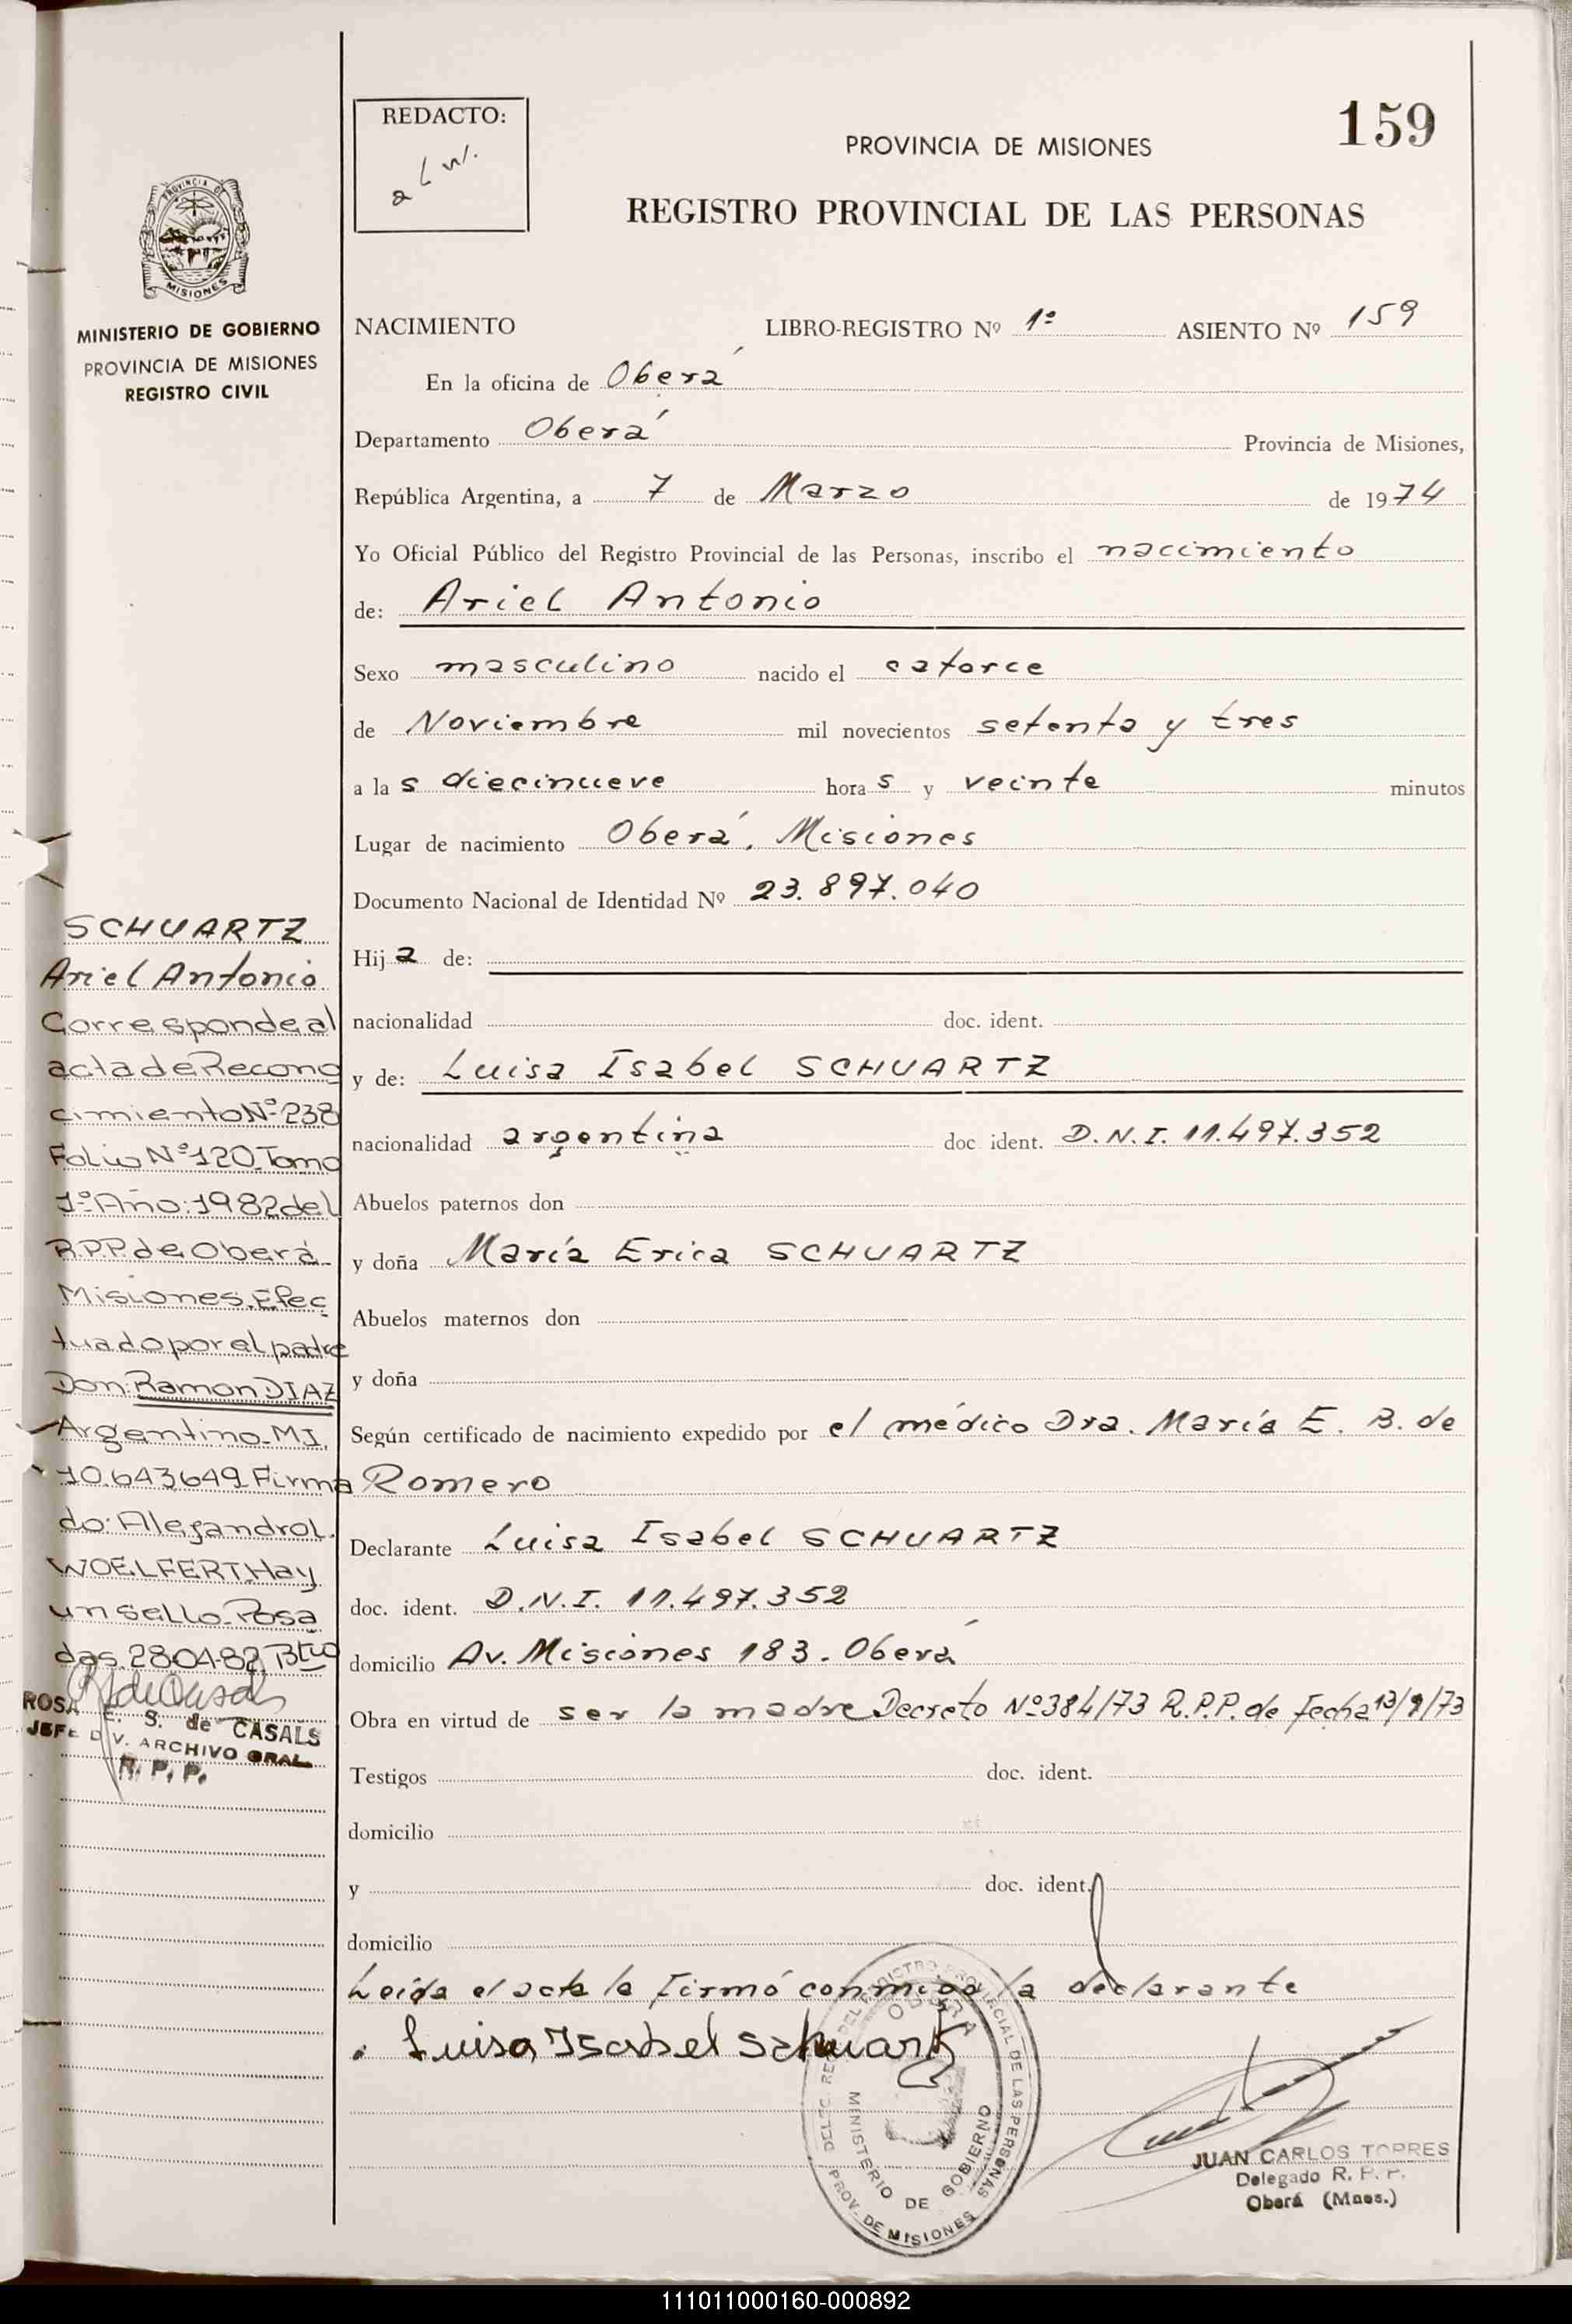 159
REDACTO:
PROVINCIA DE MISIONES
REGISTRO PROVINCIAL DE LAS PERSONAS
PROVINCIA DE
MISIONES
MINISTERIO DE GOBIERNO
PROVINCIA DE MISIONES
REGISTRO CIVIL
NACIMIENTO LIBRO-REGISTRO Nº 1º ASIENTO Nº 159
En la oficina de Oberá
Departamento Oberá Provincia de Misiones,
República Argentina, a 7 de Marzo de 1974
Yo Oficial Público del Registro Provincial de las Personas, inscribo el nacimiento
de: Ariel Antonio
Sexo masculino nacido el catorce
de Noviembre mil novecientos setenta y tres
a las diecinueve horas y veinte minutos
Lugar de nacimiento Oberá, Misiones
Documento Nacional de Identidad Nº 23.897.040
Hija de:
nacionalidad doc. ident.
y de: Luisa Isabel SCHUARTZ
nacionalidad argentina doc ident. D.N.I. 11.497.352
Abuelos paternos don
y doña María Erica SCHUARTZ
Abuelos maternos don
y doña
Según certificado de nacimiento expedido por el médico Dra. María E. B. de
Romero
Declarante Luisa Isabel SCHUARTZ
doc. ident. D.N.I. 11.497.352
domicilio Av. Misiones 183. Oberá
Obra en virtud de ser la madre Decreto Nº384/73 R.P.P. de fecha 13/9/73
Testigos doc. ident.
domicilio
y doc. ident.
domicilio
Leída el acta la firmó conmigo la declarante
Luisa Isabel Schuartz
SCHUARTZ
Ariel Antonio
Corresponde al
acta de Recono
cimiento Nº 238
Folio Nº 120 Tomo
1º Año: 1982 del
R.P.P. de Oberá
Misiones. Efec
tuado por el padre
Don: Ramon DIAZ
Argentino-M.I.
10.643649 Firma
do: Alejandro L.
WOELFERT. Hay
un sello. Posa
das. 28-04-82
ROSA E. S. de CASALS
JEFE DIV. ARCHIVO GRAL.
R. P. P.
DELEG. REG DEL REGISTRO PROVINCIAL DE LAS PERSONAS
OBERA
MINISTERIO DE GOBIERNO
PROV. DE MISIONES
JUAN CARLOS TORRES
Delegado R. P. P.
Oberá (Mnes.)
111011000160-000892